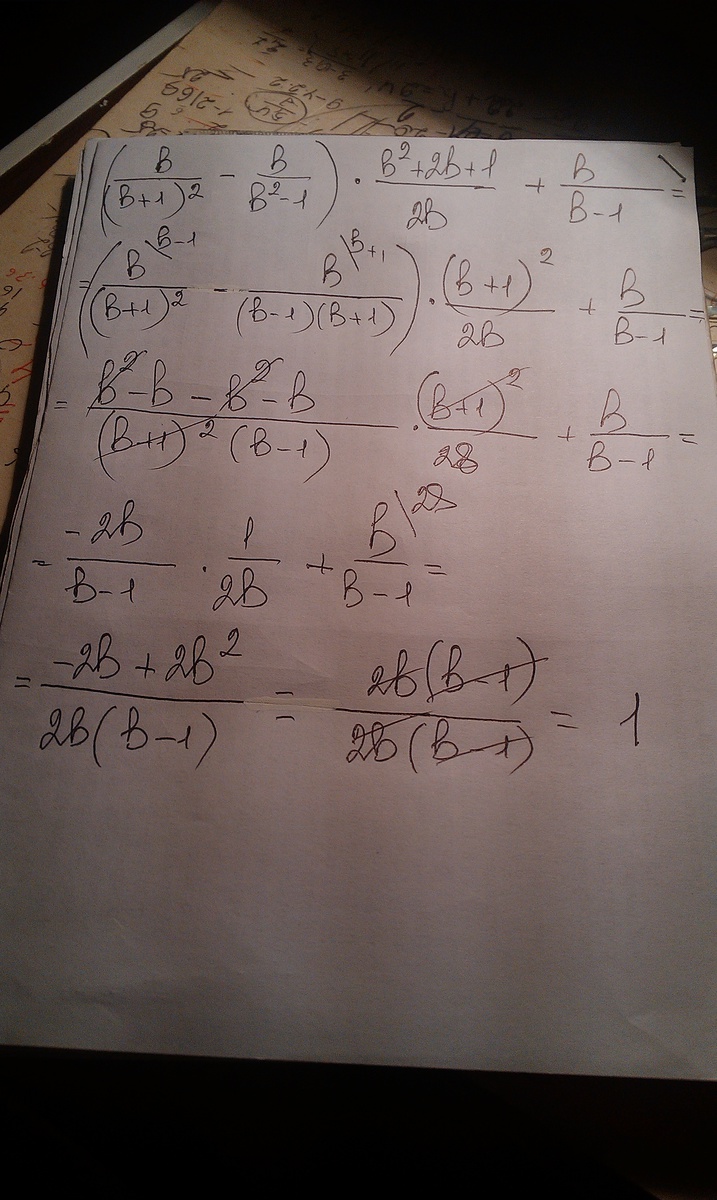 (B/(B+1)² − B/(B²−1)) · (B²+2B+1)/2B + B/(B−1) =
= (B\B−1/(B+1)² − B\B+1/((B−1)(B+1))) · (B+1)²/2B + B/(B−1) =
= (B²−B−B²−B)/((B+1)²(B−1)) · (B+1)²/2B + B/(B−1) =
= −2B/(B−1) · 1/2B + B\2B/(B−1) =
= (−2B+2B²)/(2B(B−1)) = 2B(B−1)/(2B(B−1)) = 1